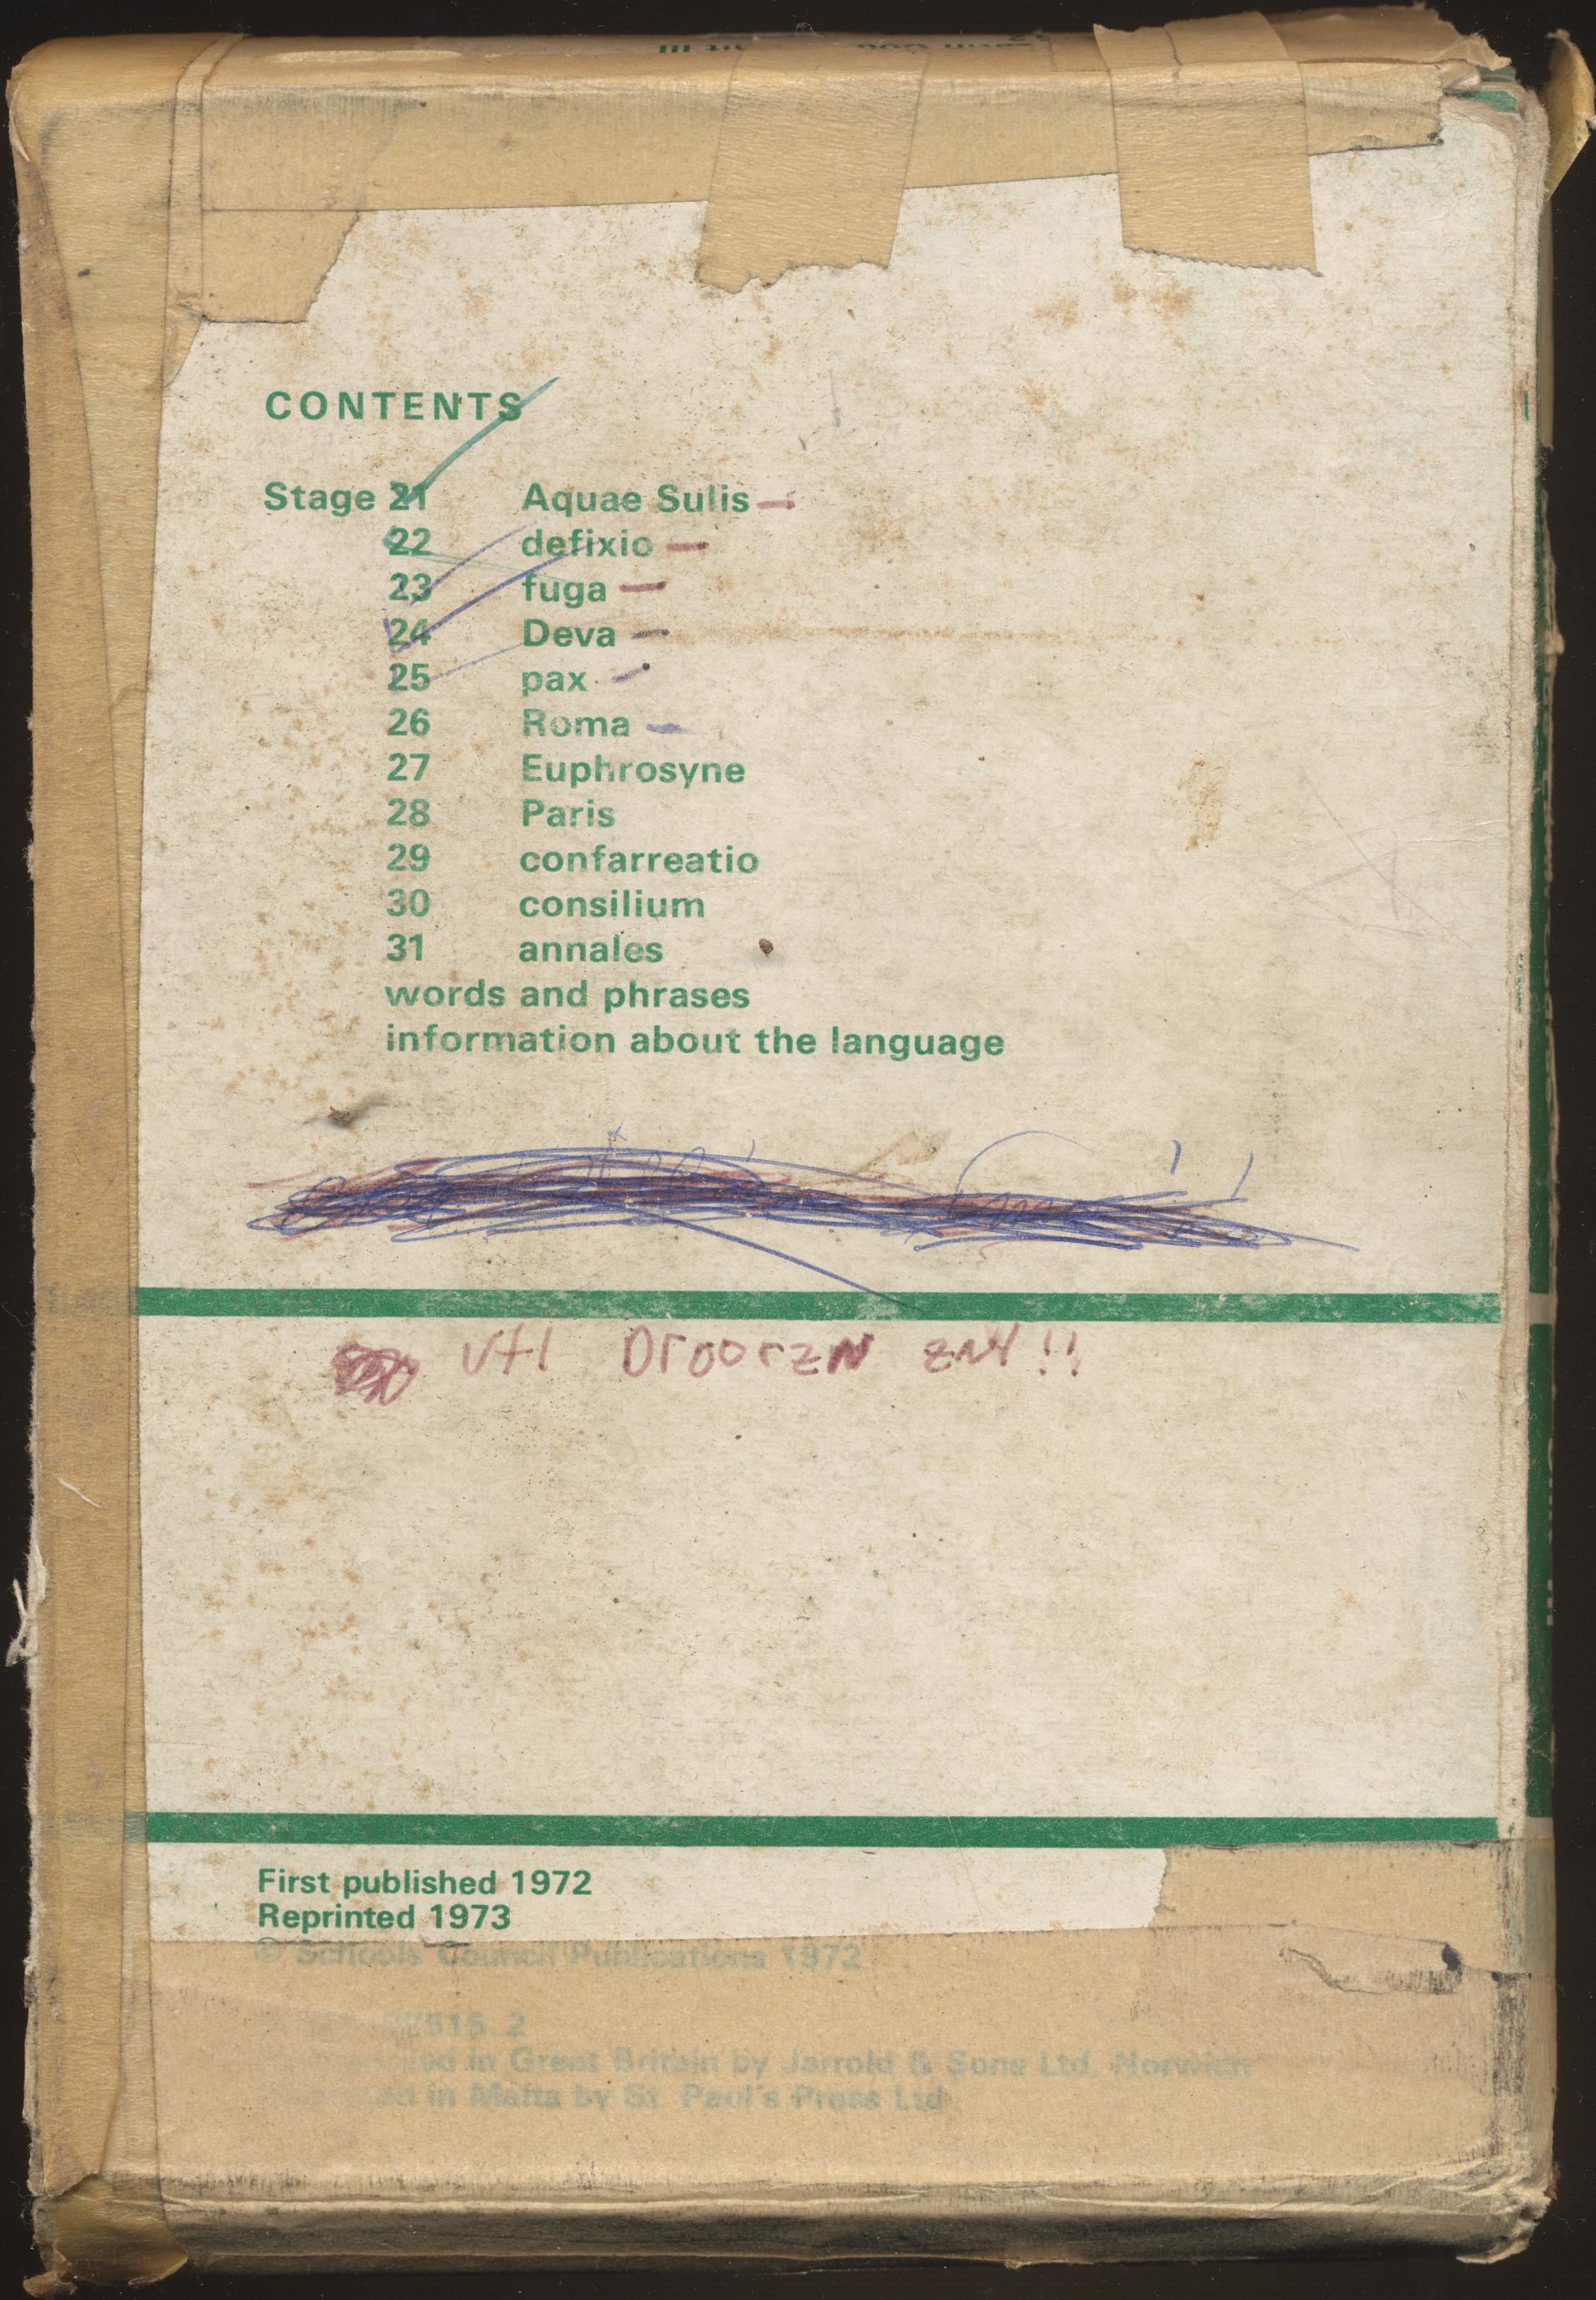 CONTENTS
Stage 21 Aquae Sulis
22 defixio
23 fuga
24 Deva
25 pax
26 Roma
27 Euphrosyne
28 Paris
29 confarreatio
30 consilium
31 annales
words and phrases
information about the language
First published 1972
Reprinted 1973
© Schools Council Publications 1972
2
in Great Britain by Jarrold & Sons Ltd, Norwich
in Malta by St Paul's Press Ltd